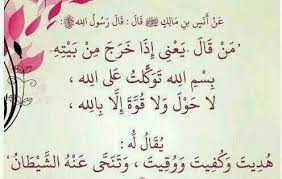 عَنْ أَنَسِ بْنِ مَالِكٍ ﷺ قَالَ : قَالَ رَسُولُ اللهِ ﷺ :
'مَنْ قَالَ يَعْنِي إِذَا خَرَجَ مِنْ بَيْتِهِ
بِسْمِ اللهِ تَوَكَّلْتُ عَلَى اللهِ ،
لَا حَوْلَ وَلَا قُوَّةَ إِلَّا بِاللهِ ،
يُقَالُ لَهُ :
هُدِيتَ وَكُفِيتَ وَوُقِيتَ ، وَتَنَحَّى عَنْهُ الشَّيْطَانُ'